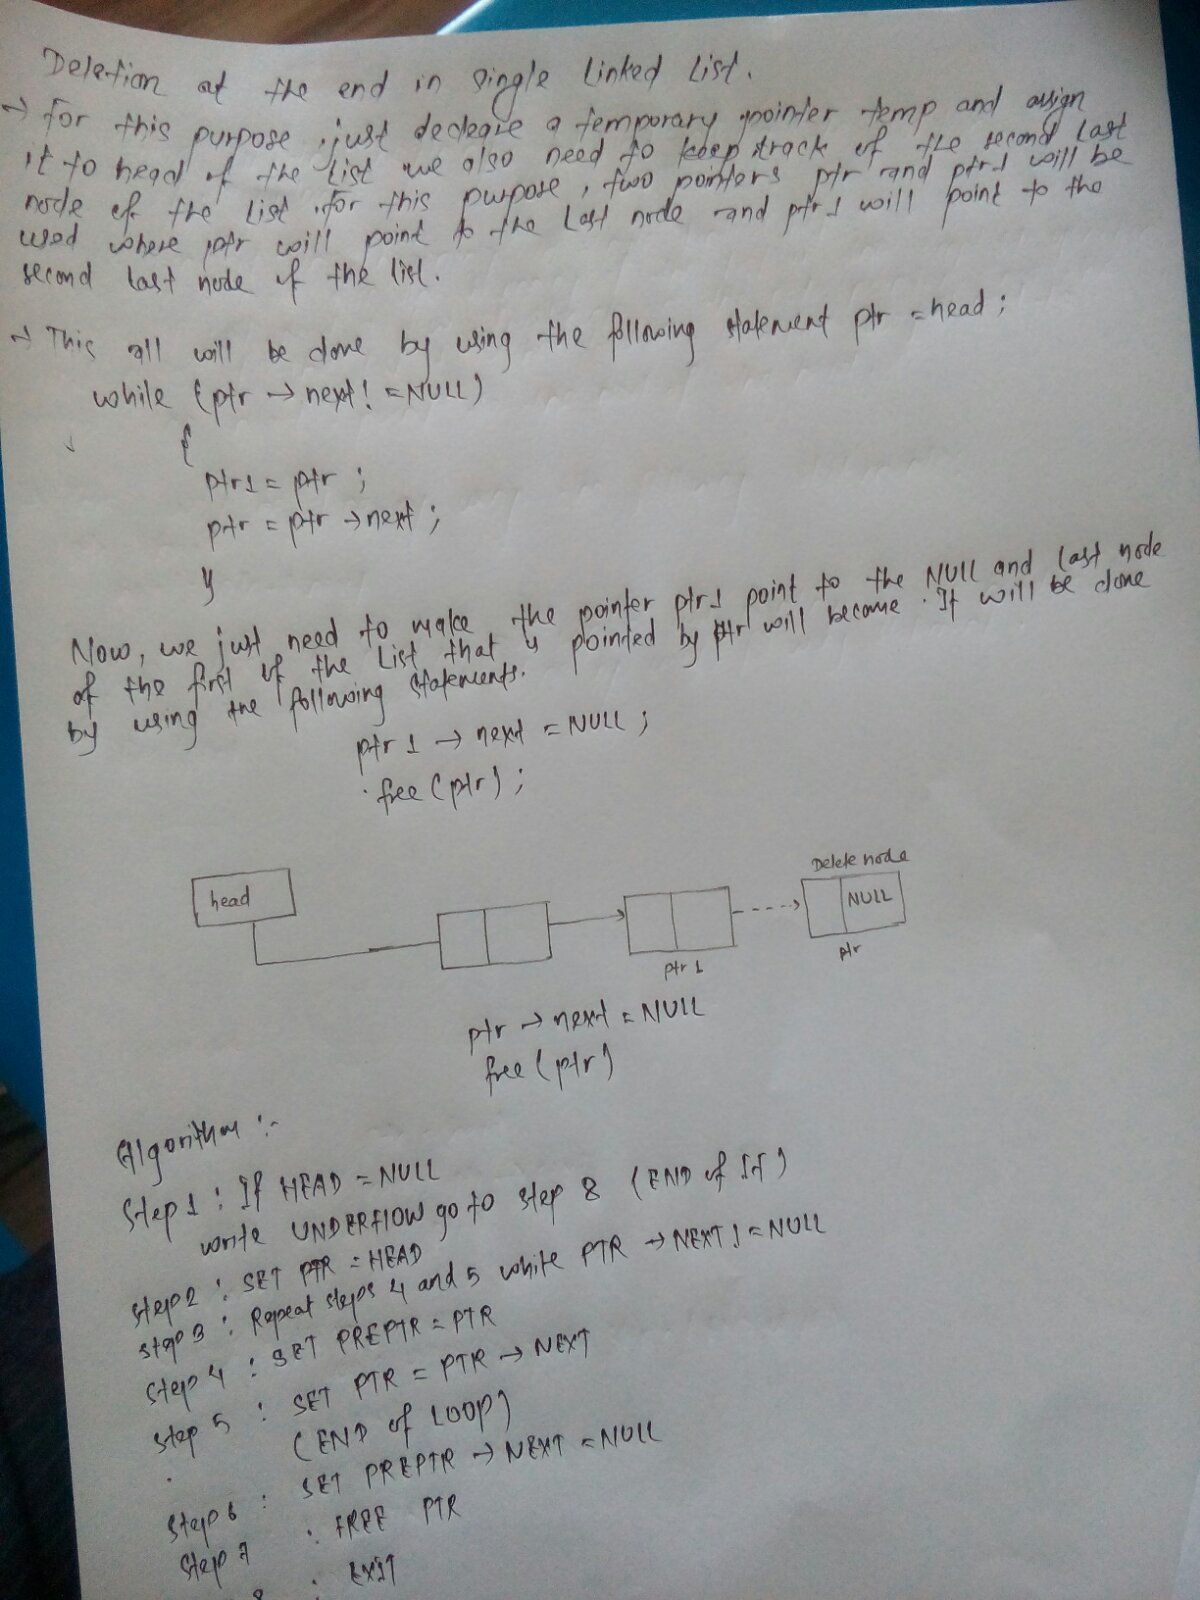 Deletion at the end in single linked list.
→ for this purpose, just decleare a temporary pointer temp and assign
it to head of the list we also need to keep track of the second last
node of the list. for this purpose, two pointers ptr and ptr1 will be
used where ptr will point to the last node and ptr1 will point to the
second last node of the list.
→ This all will be done by using the following statement ptr = head;
while (ptr → next! = NULL)
{
ptr1 = ptr ;
ptr = ptr → next ;
}
Now, we just need to make the pointer ptr1 point to the NULL and last node
of the first of the list that is pointed by ptr will become. It will be done
by using the following statements.
ptr 1 → next = NULL ;
free (ptr) ;
Delete node
head
NULL
ptr 1
ptr
ptr → next = NULL
free (ptr)
Algorithm :-
Step 1 : If HEAD = NULL
write UNDERFLOW go to step 8 (END of If)
step 2 : SET PTR = HEAD
step 3 : Repeat steps 4 and 5 while PTR → NEXT ! = NULL
Step 4 : SET PREPTR = PTR
step 5 : SET PTR = PTR → NEXT
(END of LOOP)
Step 6 : SET PREPTR → NEXT = NULL
Step 7 : FREE PTR
8 : EXIT